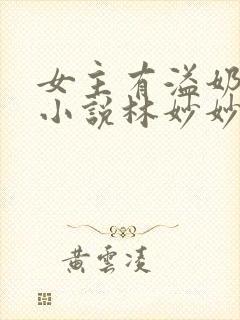 女主有溢奶
小說林妙妙
黃雲凌